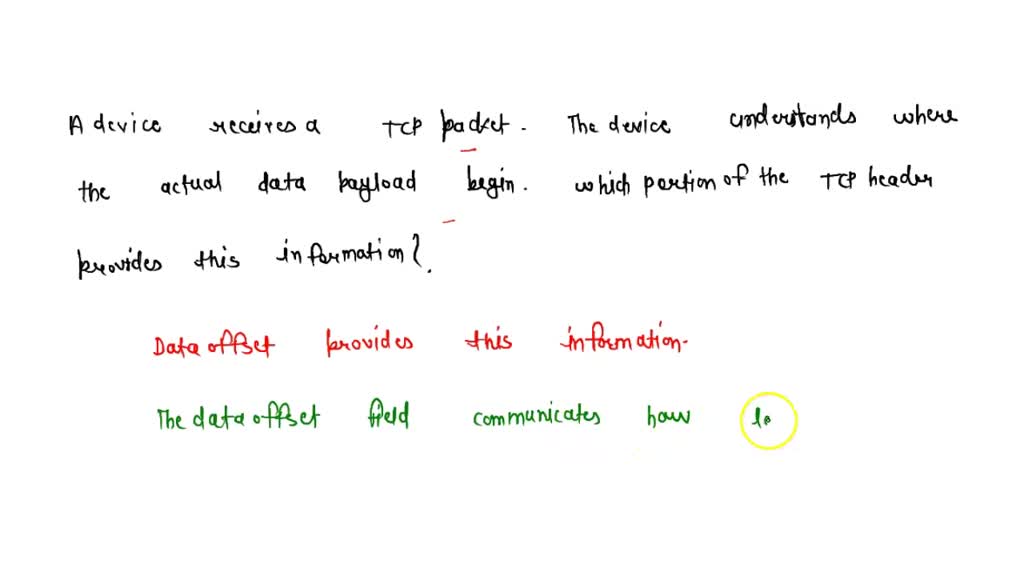 A device receives a TCP packet. The device understands where
the actual data payload begin. which portion of the TCP header
provides this information?.
Data offset provides this information.
The data offset field communicates how lo